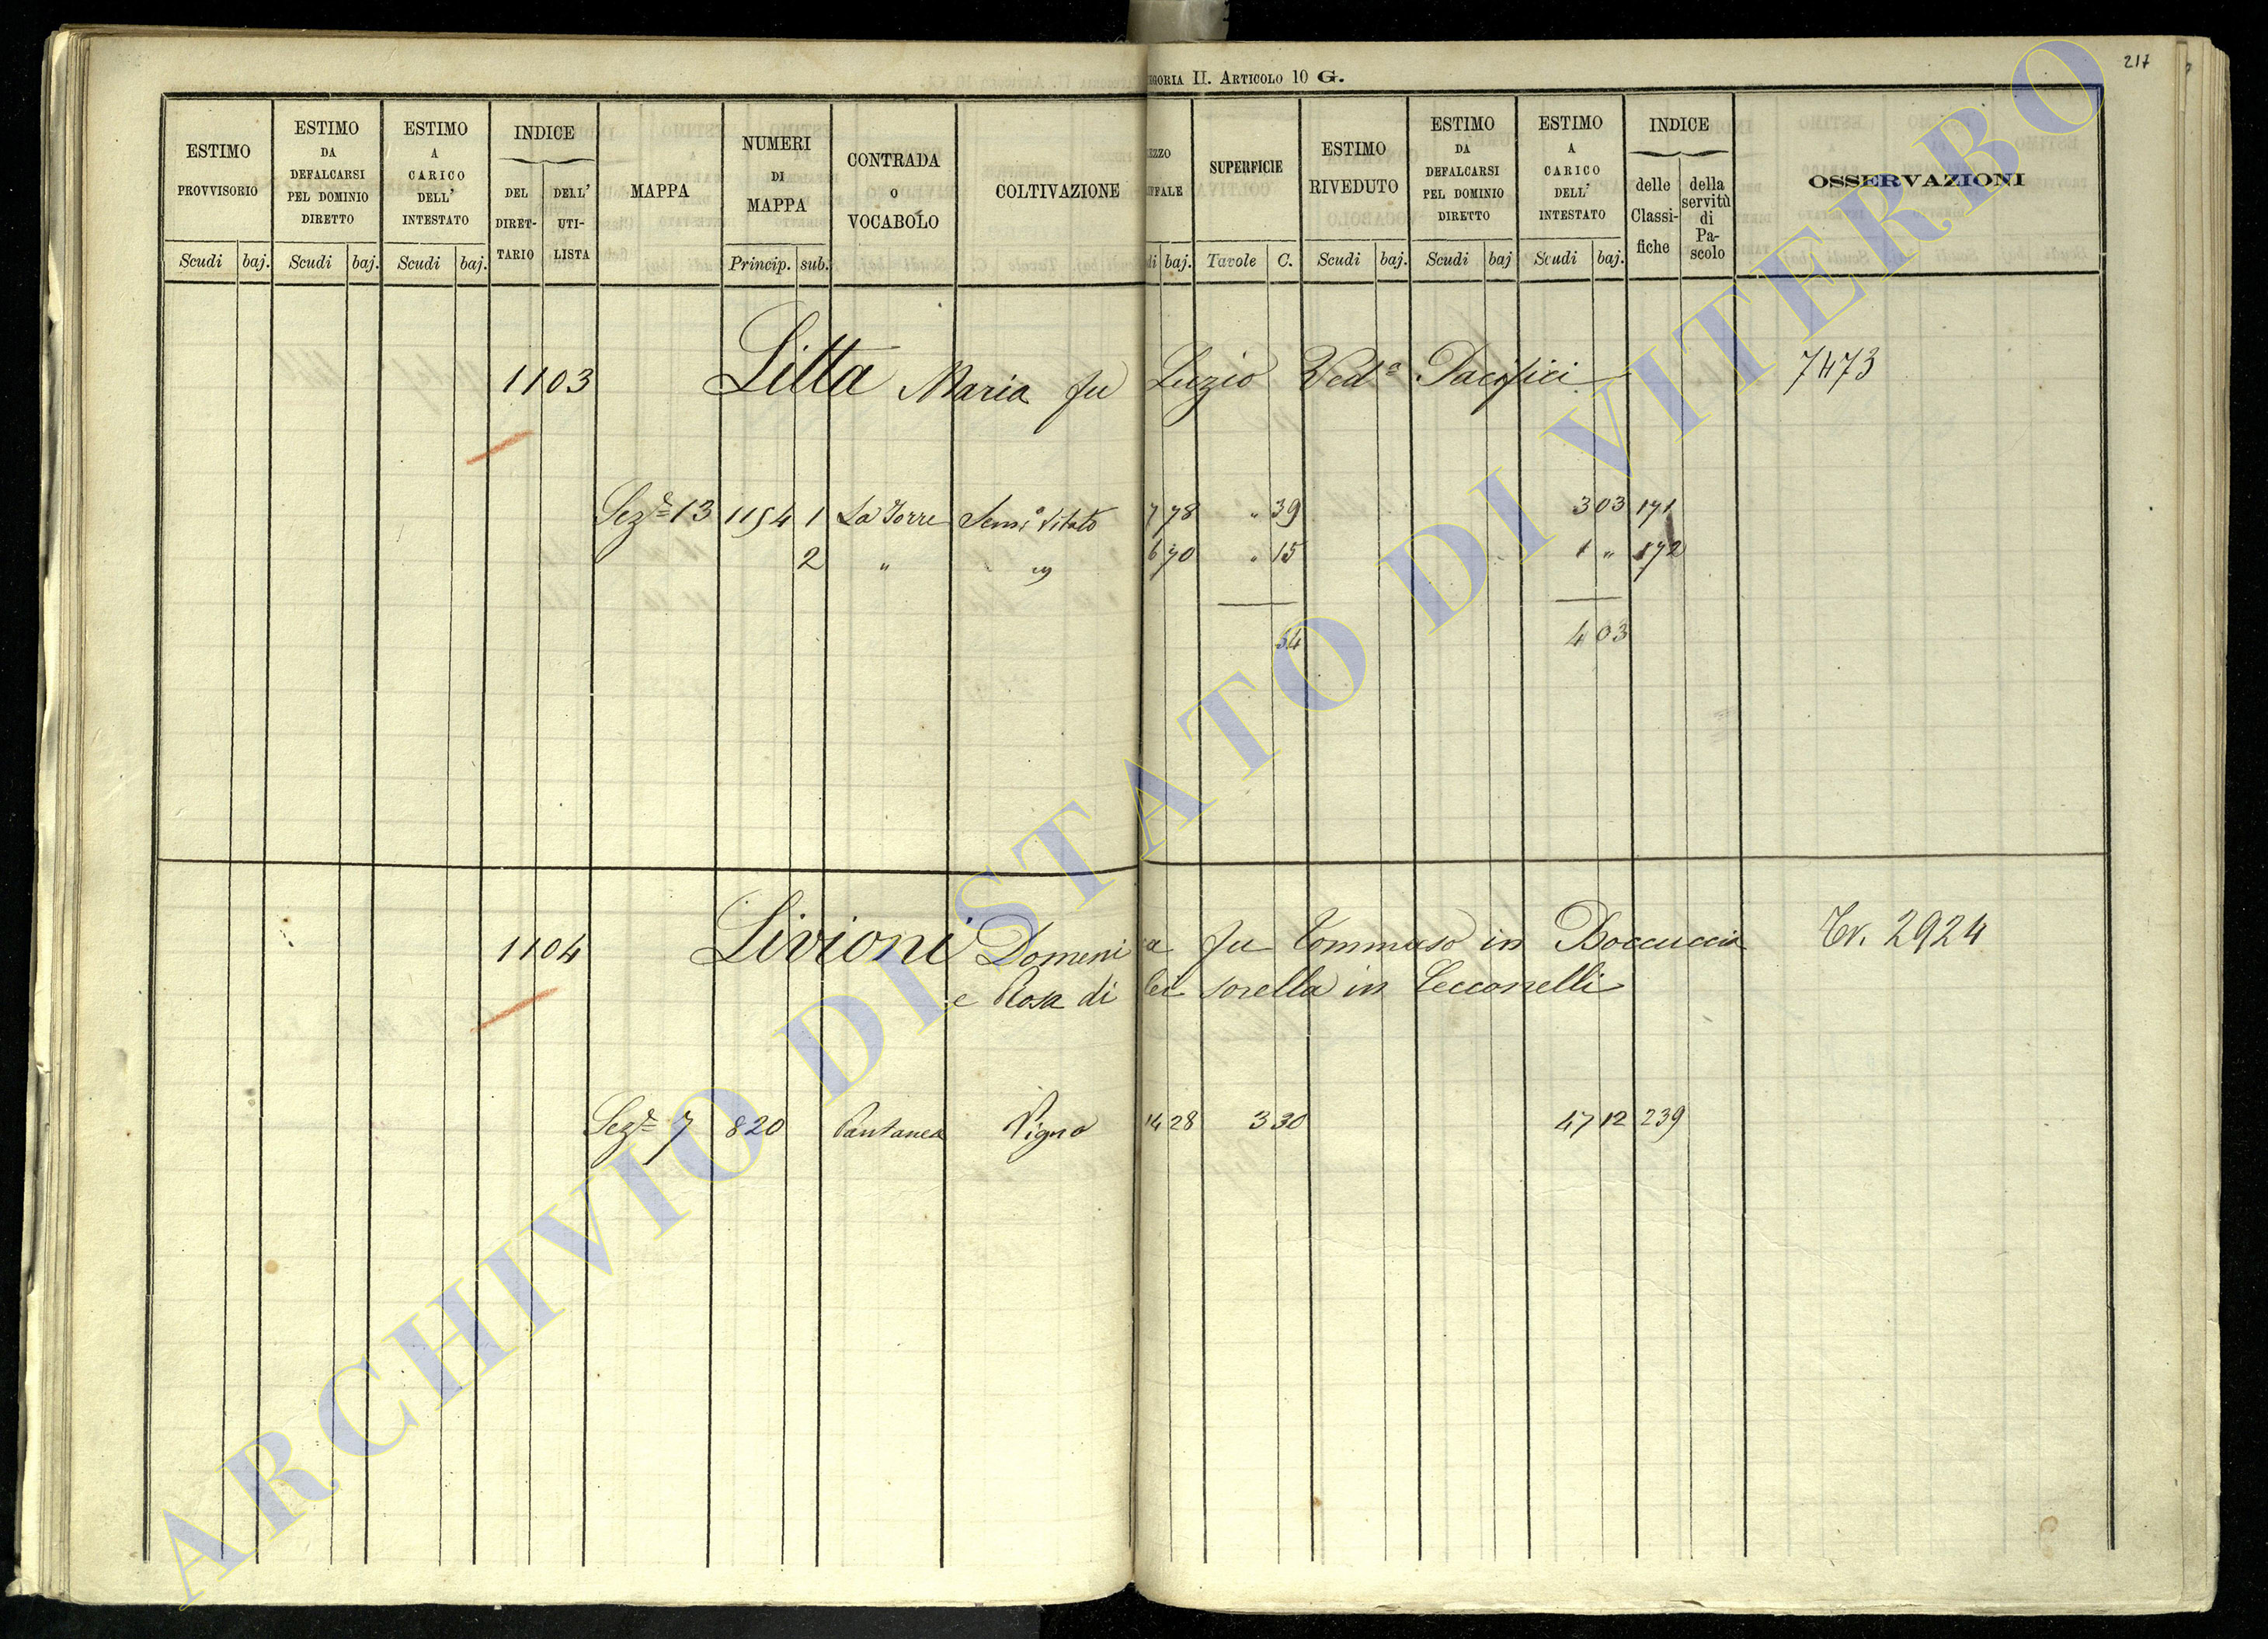 EGORIA II. ARTICOLO 10 G.
217
ESTIMO PROVVISORIO
ESTIMO DA DEFALCARSI PEL DOMINIO DIRETTO
ESTIMO A CARICO DELL' INTESTATO
INDICE
DEL DIRET-TARIO
DELL' UTI-LISTA
MAPPA
NUMERI DI MAPPA
CONTRADA O VOCABOLO
COLTIVAZIONE
EZZO
IFFALE
SUPERFICIE
ESTIMO RIVEDUTO
ESTIMO DA DEFALCARSI PEL DOMINIO DIRETTO
ESTIMO A CARICO DELL' INTESTATO
INDICE
delle Classi-fiche
della servitù di Pa-scolo
OSSERVAZIONI
Scudi baj. Scudi baj. Scudi baj. Princip. sub. di baj. Tavole C. Scudi baj. Scudi baj Scudi baj.
1103 Litta Maria fu Luzio Ved.a Pacifici 7473
Sez.e 13 1154 1 La Torre Sem.o Vitato 7 78 " 39 3 03 171
2 " " 6 70 " 15 1 " 172
54 4 03
1104 Livioni Domenica fu Tommaso in Boccuccia Tv. 2924
e Rosa di lei sorella in Cecconelli
Sez.e 7 820 Pantanea Vigna 14 28 3 30 47 12 239
ARCHIVIO DI STATO DI VITERBO